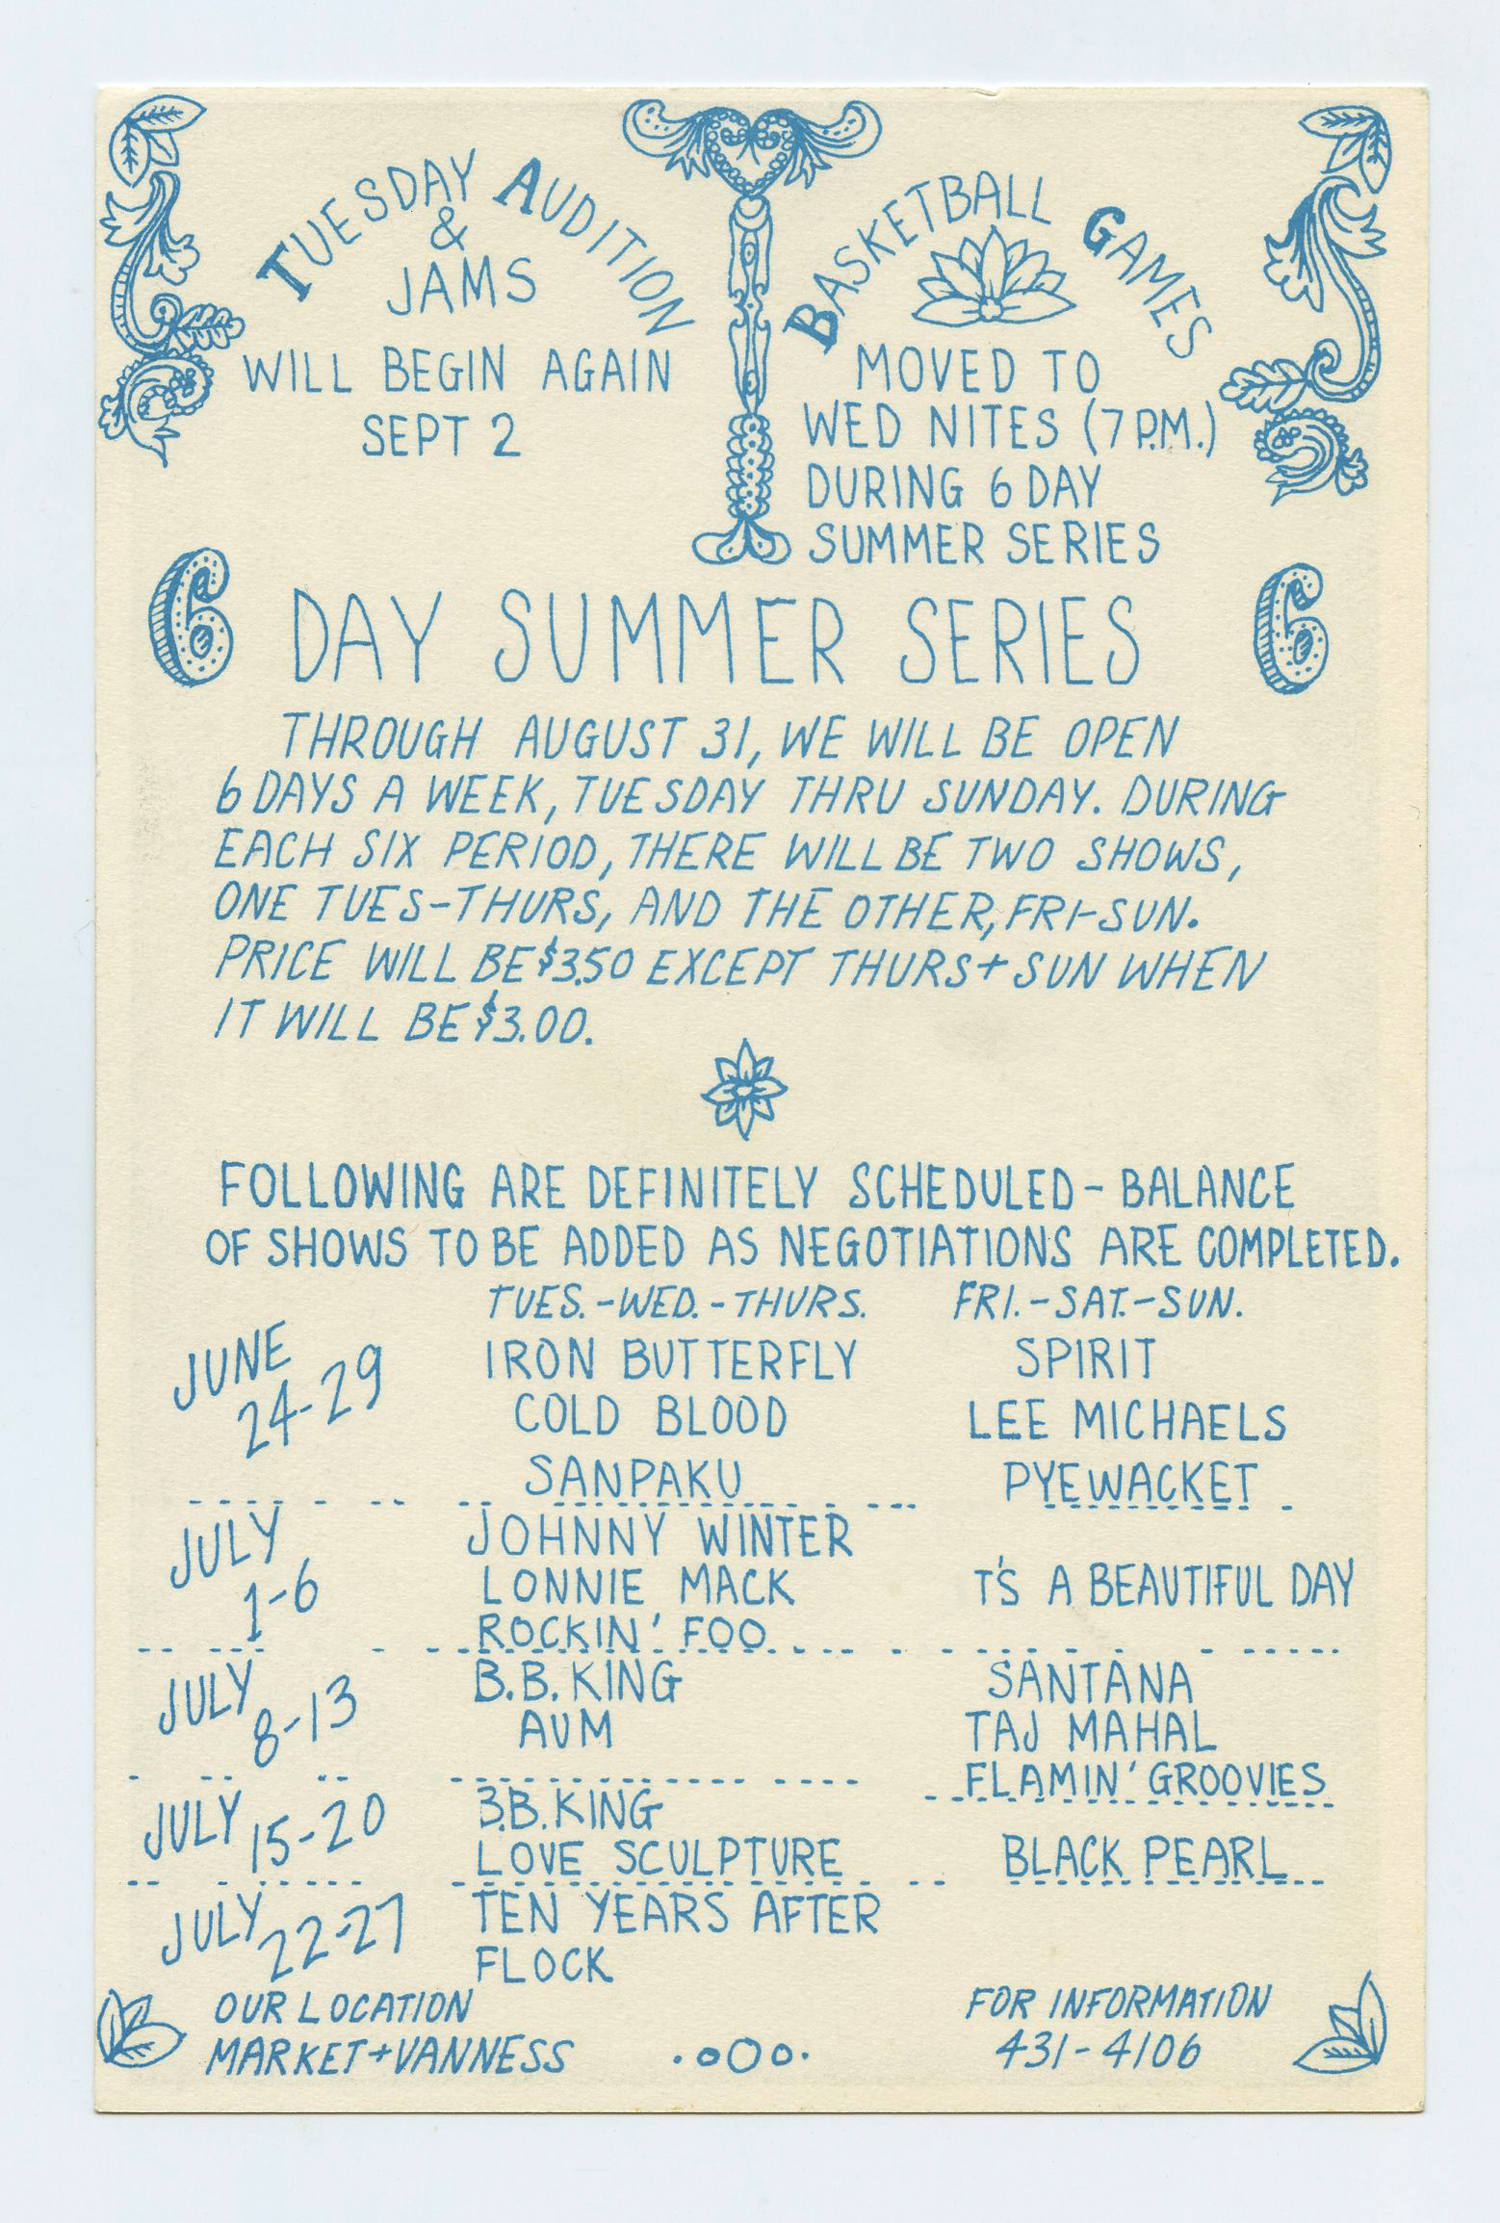 TUESDAY AUDITION
&
JAMS
WILL BEGIN AGAIN
SEPT 2
BASKETBALL GAMES
MOVED TO
WED NITES (7 P.M.)
DURING 6 DAY
SUMMER SERIES
6 DAY SUMMER SERIES 6
THROUGH AUGUST 31, WE WILL BE OPEN
6 DAYS A WEEK, TUESDAY THRU SUNDAY. DURING
EACH SIX PERIOD, THERE WILL BE TWO SHOWS,
ONE TUES-THURS, AND THE OTHER, FRI-SUN.
PRICE WILL BE $3.50 EXCEPT THURS + SUN WHEN
IT WILL BE $3.00.
FOLLOWING ARE DEFINITELY SCHEDULED - BALANCE
OF SHOWS TO BE ADDED AS NEGOTIATIONS ARE COMPLETED.
TUES.-WED.-THURS. FRI.-SAT.-SUN.
JUNE
24-29
IRON BUTTERFLY
COLD BLOOD
SANPAKU
SPIRIT
LEE MICHAELS
PYEWACKET
JULY
1-6
JOHNNY WINTER
LONNIE MACK
ROCKIN' FOO
T'S A BEAUTIFUL DAY
JULY
8-13
B.B. KING
AUM
SANTANA
TAJ MAHAL
FLAMIN' GROOVIES
JULY 15-20
B.B. KING
LOVE SCULPTURE
BLACK PEARL
JULY 22-27
TEN YEARS AFTER
FLOCK
OUR LOCATION
MARKET + VANNESS
FOR INFORMATION
431-4106